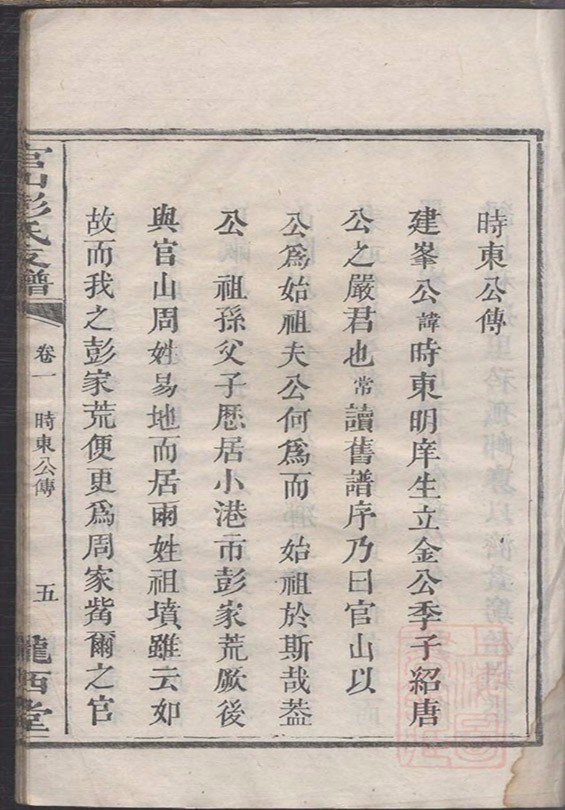 時東公傳
建峯公諱時東明庠生立金公季子紹唐
公之嚴君也常讀舊譜序乃曰官山以
公爲始祖夫公何爲而 始祖於斯哉葢
公 祖孫父子歷居小港市彭家荒厥後
與官山周姓易地而居兩姓祖墳雖云如
故而我之彭家荒便更爲周家觜爾之官
官山彭氏支譜
卷一 時東公傳 五
隴西堂